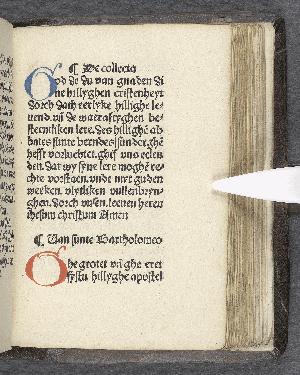 ¶ De collecta
God de du van gnaden di
ne hillyghen cristenheyt
dorch dach eerlyke hillighe le-
uend. vn̄ de warrastyghen be-
stentniken lere. des hillighē ab-
bates sunte berndes sunder ghē
hefft vorluchtet. gheff uns eelen
den. Dat wy syne lere moghē re-
chte vorstaen. unde myt guden
werken. vlytliken vullenbryn-
ghen. dorch unsen leenen heren
ihesum christum Amen
¶ Van sunte Bartholomeo
Ghe grotet vn̄ ghe eret
sistu hillyghe apostel